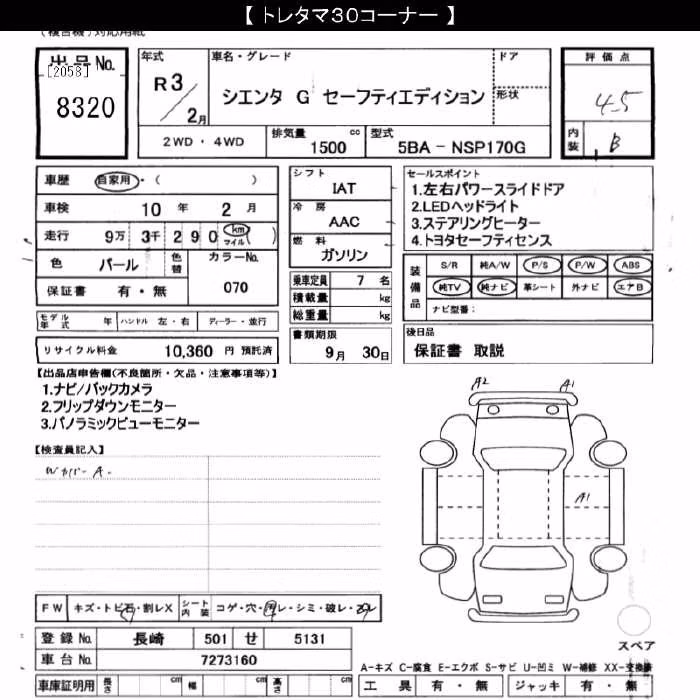 【 トレタマ30コーナー 】
出品 No.
[2058]
8320
年式
R3
2月
車名・グレード
シエンタ G セーフティエディション
ドア
形状
評価点
4.5
内装
B
2WD・4WD
排気量 1500 cc
型式 5BA－NSP170G
車歴 自家用・( )
車検 10 年 2 月
走行 9万 3千 290 km マイル ( )
色 パール 色替 カラーNo. 070
保証書 有・無
モデル年式 年 ハンドル 左・右 ディーラー・並行
リサイクル料金 10,360 円 預託済
シフト IAT
冷房 AAC
燃料 ガソリン
乗車定員 7 名
積載量 kg
総重量 kg
書類期限
9月 30日
セールスポイント
1.左右パワースライドドア
2.LEDヘッドライト
3.ステアリングヒーター
4.トヨタセーフティセンス
装備品
S/R 純A/W P/S P/W ABS
純TV 純ナビ 革シート 外ナビ エアB
ナビ型番：
後日品
保証書 取説
【出品店申告欄(不良箇所・欠品・注意事項等)】
1.ナビ/バックカメラ
2.フリップダウンモニター
3.パノラミックビューモニター
【検査員記入】
Wカバー A-
A2
A1
A1
FW キズ・トビ石・割レX
シート内装 コゲ・穴・汚レ・シミ・破レ・スレ
登録 No. 長崎 501 せ 5131
車台 No. 7273160
車庫証明用 長さ cm 幅 cm 高さ cm
スペア
A-キズ C-腐食 E-エクボ S-サビ U-凹ミ W-補修 XX-交換済
工具 有・無 ジャッキ 有・無